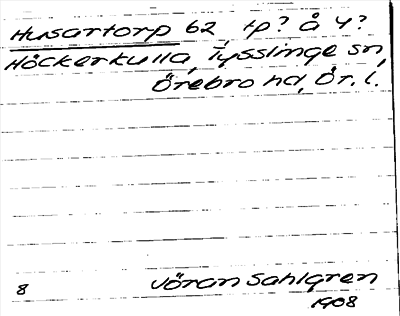 Husartorp 62, tp? å 4?
Höckerkulla, Tysslinge sn,
Örebro hd, Ör. l.
8 Jöran Sahlgren
1908